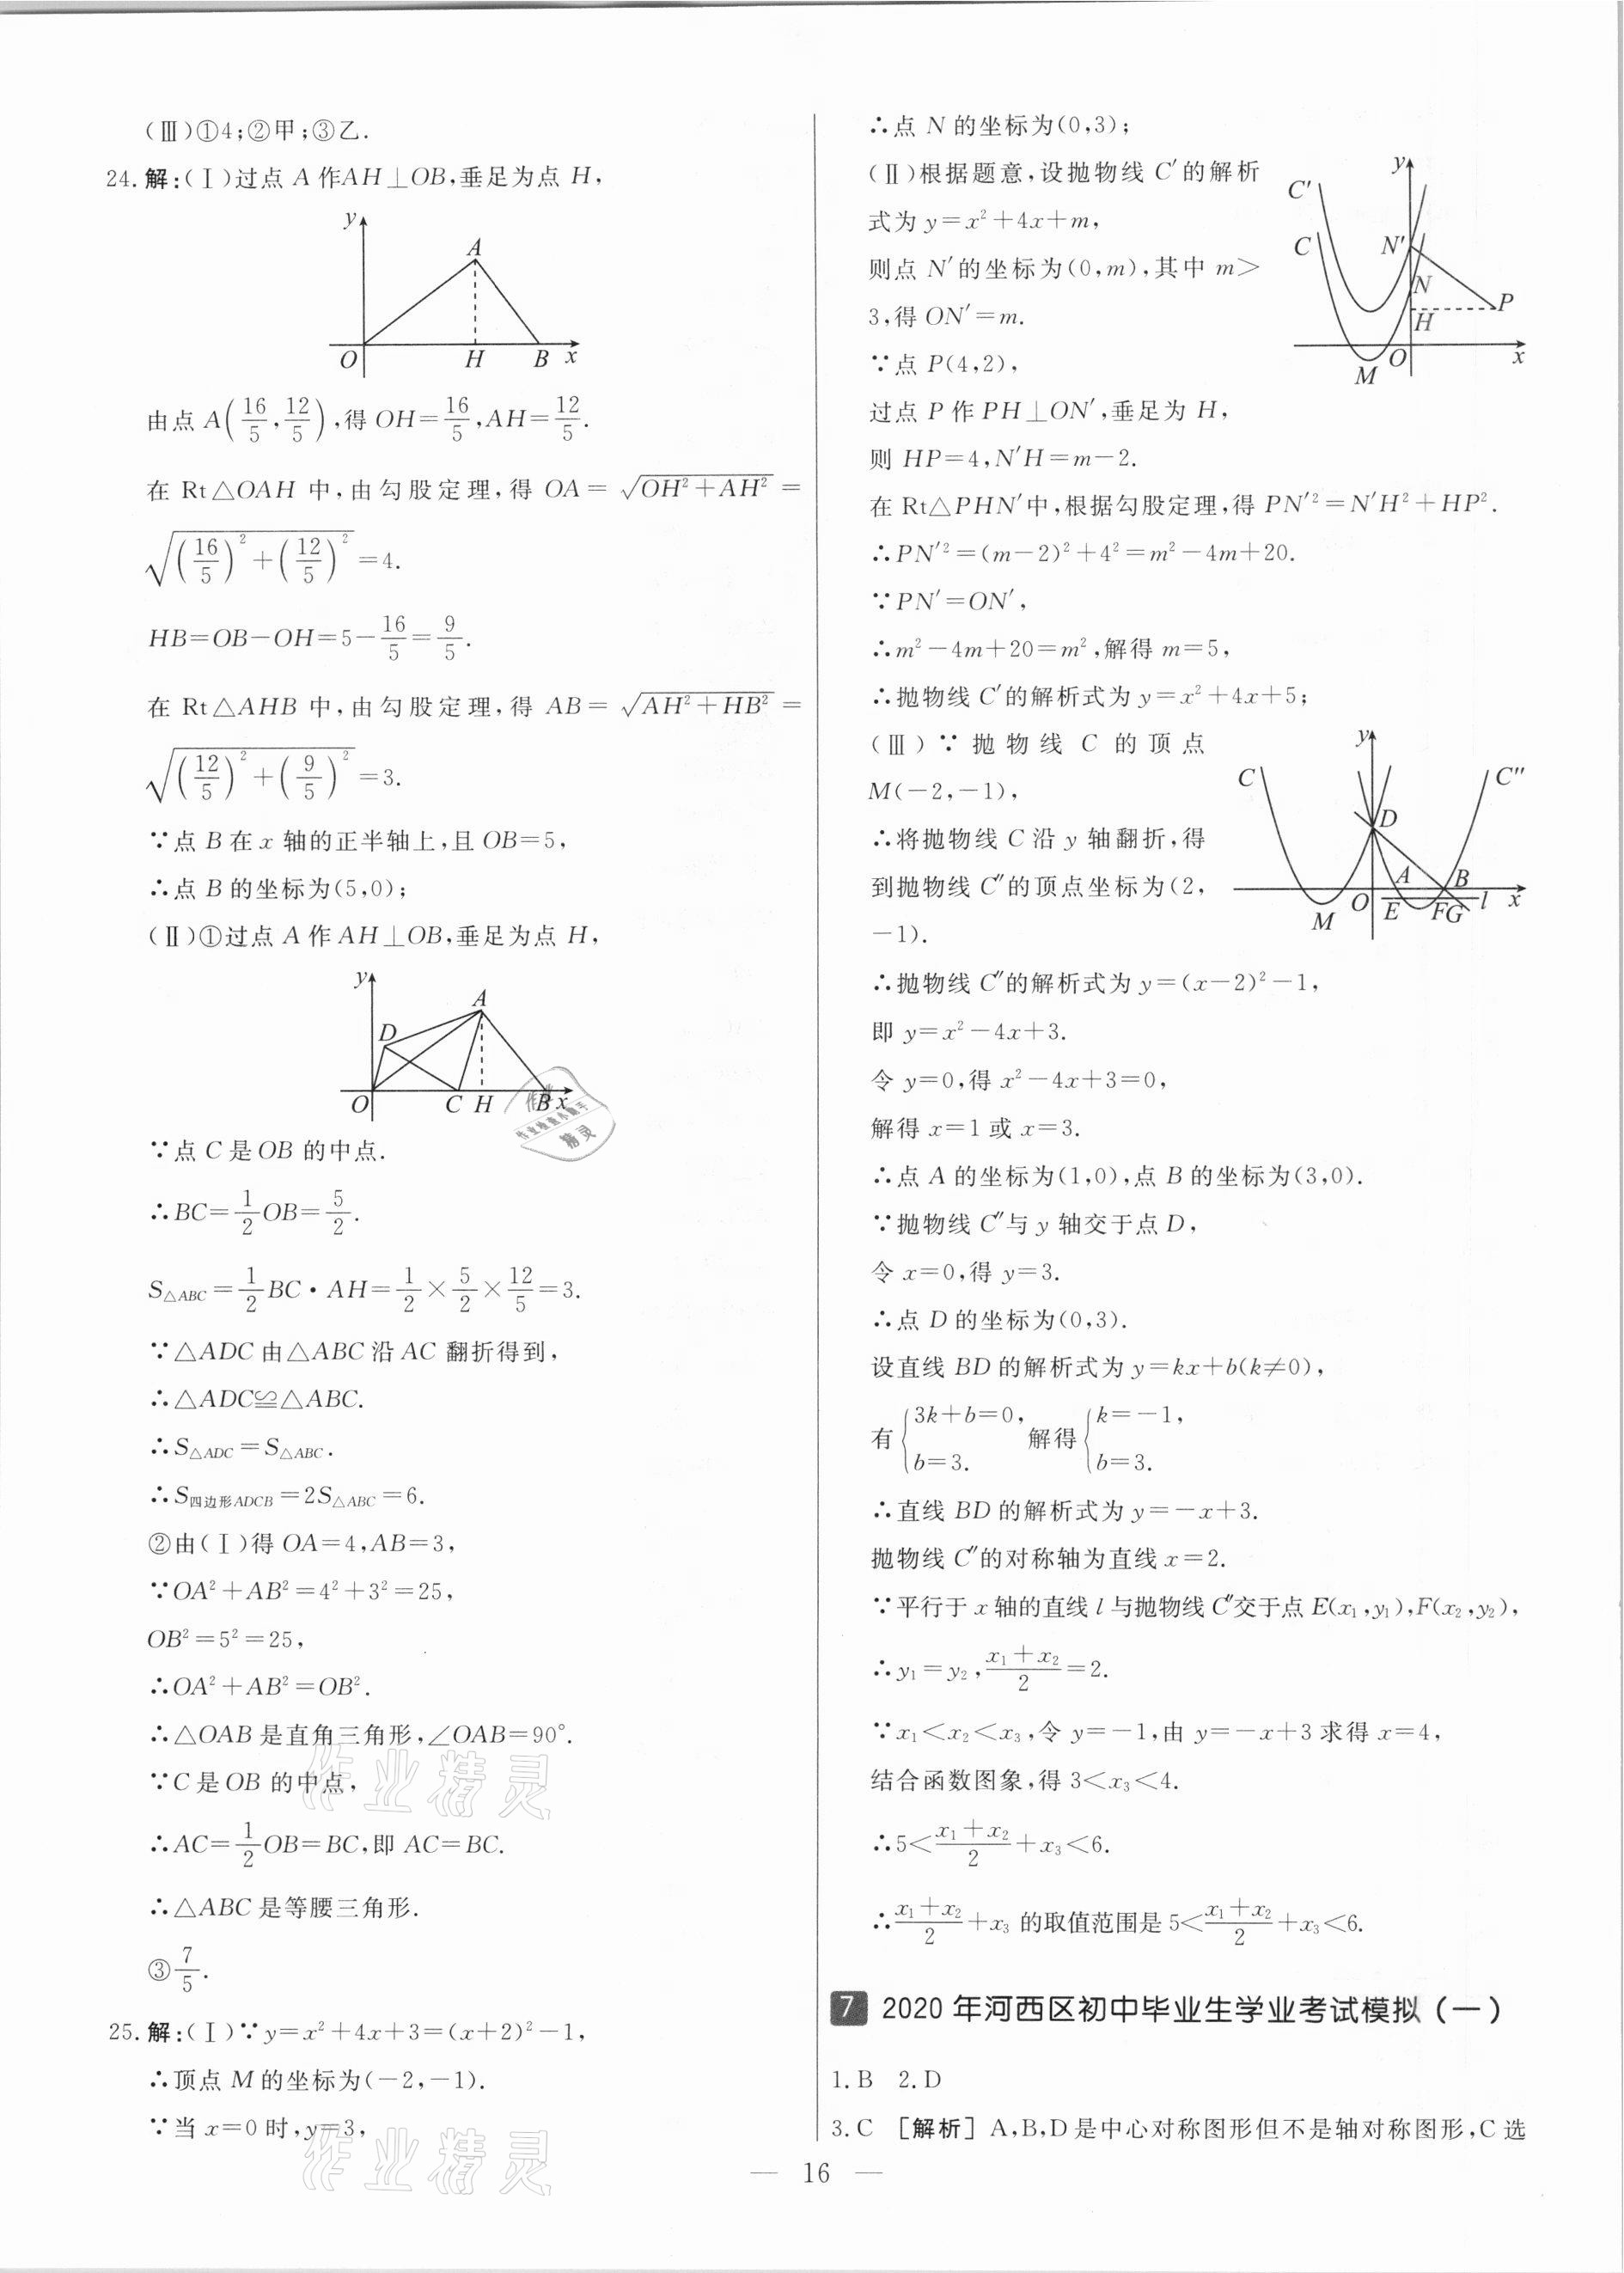 (Ⅲ)①4;②甲;③乙.
24.解:(Ⅰ)过点 A 作AH⊥OB,垂足为点 H,
y
A
O H B x
由点 A(16/5,12/5),得 OH=16/5,AH=12/5.
在 Rt△OAH 中,由勾股定理,得 OA=√(OH²+AH²)=
√((16/5)²+(12/5)²)=4.
HB=OB-OH=5-16/5=9/5.
在 Rt△AHB 中,由勾股定理,得 AB=√(AH²+HB²)=
√((12/5)²+(9/5)²)=3.
∵点 B 在 x 轴的正半轴上,且 OB=5,
∴点 B 的坐标为(5,0);
(Ⅱ)①过点 A 作 AH⊥OB,垂足为点 H,
y
A
D
O C H B x
∵点 C 是 OB 的中点.
∴BC=1/2OB=5/2.
S△ABC=1/2BC·AH=1/2×5/2×12/5=3.
∵△ADC 由△ABC 沿 AC 翻折得到,
∴△ADC≌△ABC.
∴S△ADC=S△ABC.
∴S四边形ADCB=2S△ABC=6.
②由(Ⅰ)得 OA=4,AB=3,
∵OA²+AB²=4²+3²=25,
OB²=5²=25,
∴OA²+AB²=OB².
∴△OAB 是直角三角形,∠OAB=90°.
∵C 是 OB 的中点,
∴AC=1/2OB=BC,即 AC=BC.
∴△ABC 是等腰三角形.
③7/5.
25.解:(Ⅰ)∵y=x²+4x+3=(x+2)²-1,
∴顶点 M 的坐标为(-2,-1).
∵当 x=0 时,y=3,
∴点 N 的坐标为(0,3);
(Ⅱ)根据题意,设抛物线 C′的解析
式为 y=x²+4x+m,
则点 N′的坐标为(0,m),其中 m>
3,得 ON′=m.
∵点 P(4,2),
过点 P 作 PH⊥ON′,垂足为 H,
则 HP=4,N′H=m-2.
y
C′
C N′
N
P
H
O x
M
在 Rt△PHN′中,根据勾股定理,得 PN′²=N′H²+HP².
∴PN′²=(m-2)²+4²=m²-4m+20.
∵PN′=ON′,
∴m²-4m+20=m²,解得 m=5,
∴抛物线 C′的解析式为 y=x²+4x+5;
(Ⅲ)∵抛物线 C 的顶点
M(-2,-1),
∴将抛物线 C 沿 y 轴翻折,得
到抛物线 C″的顶点坐标为(2,
-1).
y
C C″
D
A B
O E FG l x
M
∴抛物线 C″的解析式为 y=(x-2)²-1,
即 y=x²-4x+3.
令 y=0,得 x²-4x+3=0,
解得 x=1 或 x=3.
∴点 A 的坐标为(1,0),点 B 的坐标为(3,0).
∵抛物线 C″与 y 轴交于点 D,
令 x=0,得 y=3.
∴点 D 的坐标为(0,3).
设直线 BD 的解析式为 y=kx+b(k≠0),
有{3k+b=0, b=3. 解得{k=-1, b=3.
∴直线 BD 的解析式为 y=-x+3.
抛物线 C″的对称轴为直线 x=2.
∵平行于 x 轴的直线 l 与抛物线 C″交于点 E(x₁,y₁),F(x₂,y₂),
∴y₁=y₂,(x₁+x₂)/2=2.
∵x₁<x₂<x₃,令 y=-1,由 y=-x+3 求得 x=4,
结合函数图象,得 3<x₃<4.
∴5<(x₁+x₂)/2+x₃<6.
∴(x₁+x₂)/2+x₃ 的取值范围是 5<(x₁+x₂)/2+x₃<6.
7 2020 年河西区初中毕业生学业考试模拟(一)
1.B 2.D
3.C [解析] A,B,D 是中心对称图形但不是轴对称图形,C 选
— 16 —
作业精灵
作业精灵
作业
作业检查小助手
精灵